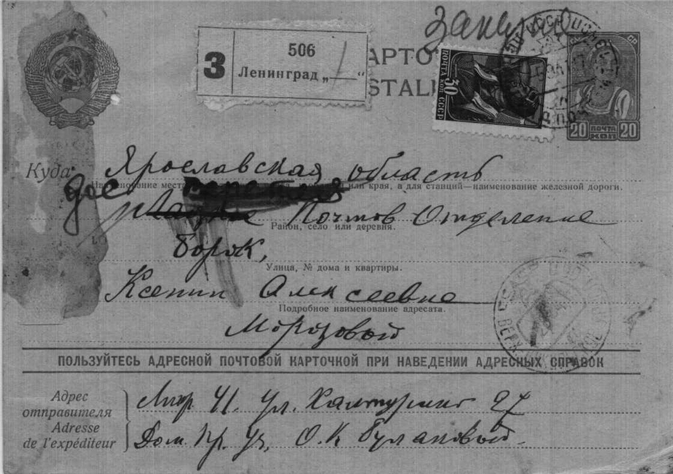 Заказное
506
З Ленинград „—“
КАРТО
STAL
30
ПОЧТА СССР
20 ПОЧТА 20
КОП
Куда: Ярославская область
Наименование мест или края, а для станций—наименование железной дороги.
Почтов Отделение
Район, село или деревня.
Борок,
Улица, № дома и квартиры.
Ксении Алексеевне
Подробное наименование адресата.
Морозовой
ПОЛЬЗУЙТЕСЬ АДРЕСНОЙ ПОЧТОВОЙ КАРТОЧКОЙ ПРИ НАВЕДЕНИИ АДРЕСНЫХ СПРАВОК
Адрес отправителя
Adresse de l'expéditeur
41. ул. Халтурина 27
Дом О.К Булановой